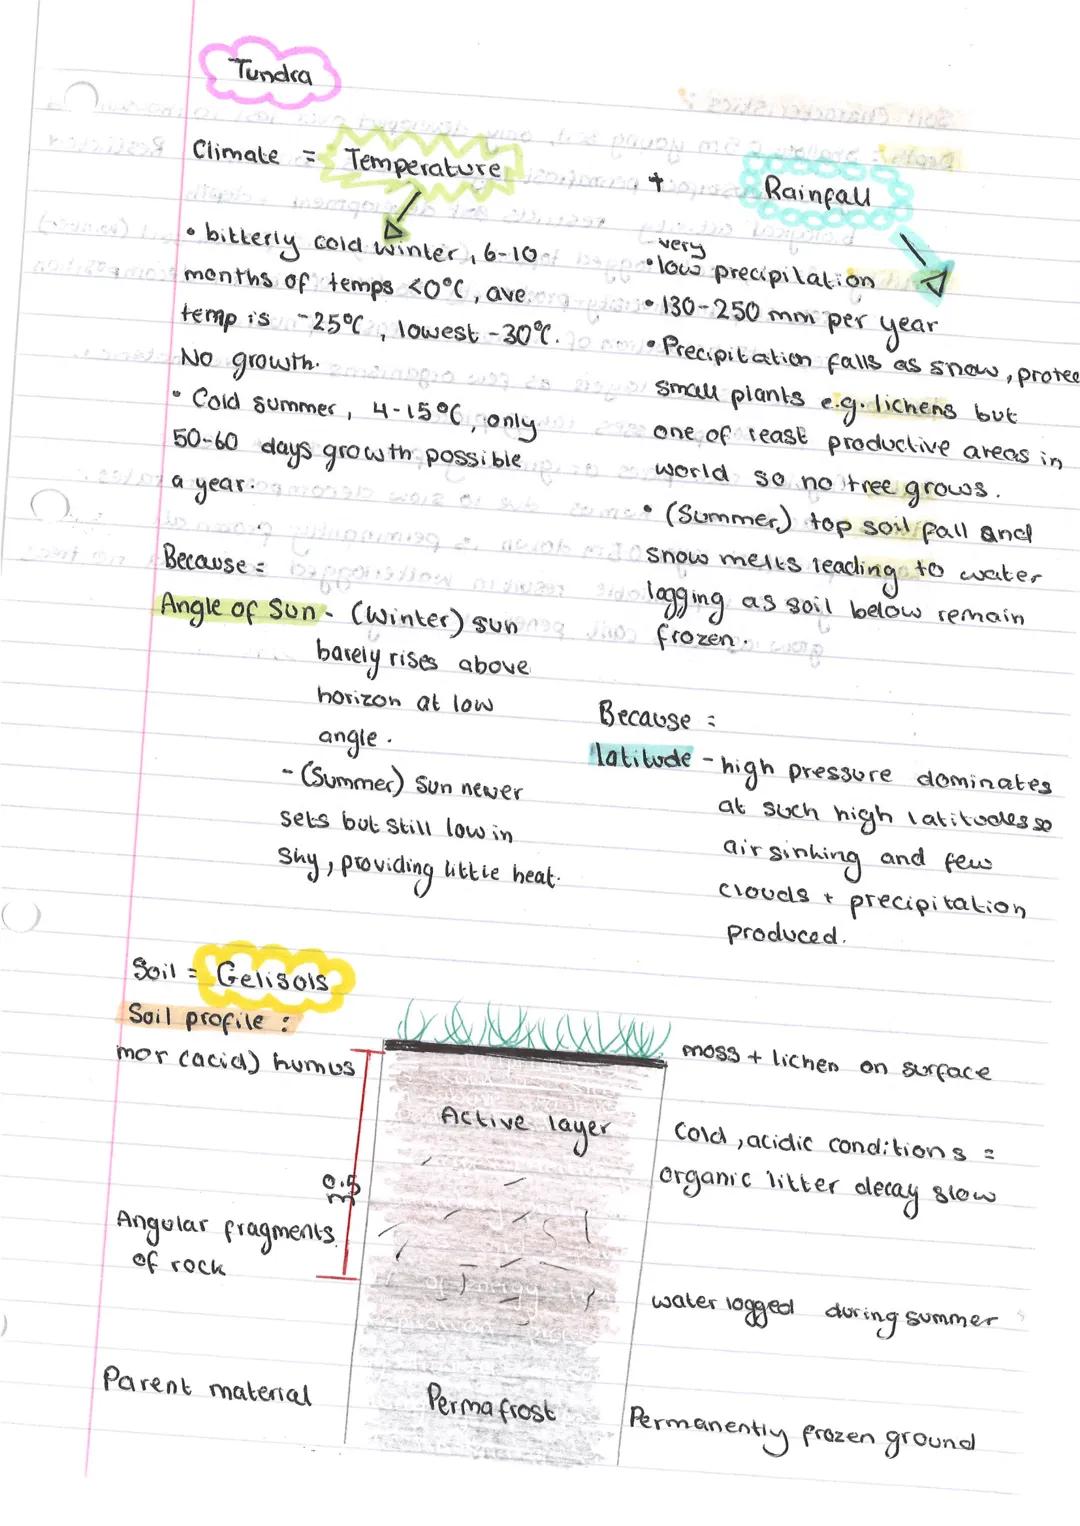 Tundra
Climate = Temperature + Rainfall
• bitterly cold winter, 6-10
months of temps <0°C, ave
temp is -25°C, lowest -30°C.
No growth.
• Cold summer, 4-15°C, only
50-60 days growth possible
a year.
Because =
Angle of Sun - (Winter) sun
barely rises above
horizon at low
angle.
- (Summer) sun never
sets but still low in
sky, providing little heat.
very
• low precipitation
• 130-250 mm per year
• Precipitation falls as snow, protec
small plants e.g. lichens but
one of least productive areas in
world so no tree grows.
• (Summer) top soil fall and
snow melts leading to water
logging as soil below remain
frozen.
Because =
latitude - high pressure dominates
at such high latitudes so
air sinking and few
clouds + precipitation
produced.
Soil = Gelisols
Soil profile :
mor (acid) humus
0.5
m
Angular fragments
of rock
Parent material
Active layer
Permafrost
moss + lichen on surface
Cold, acidic conditions =
organic litter decay slow
water logged during summer
Permanently frozen ground